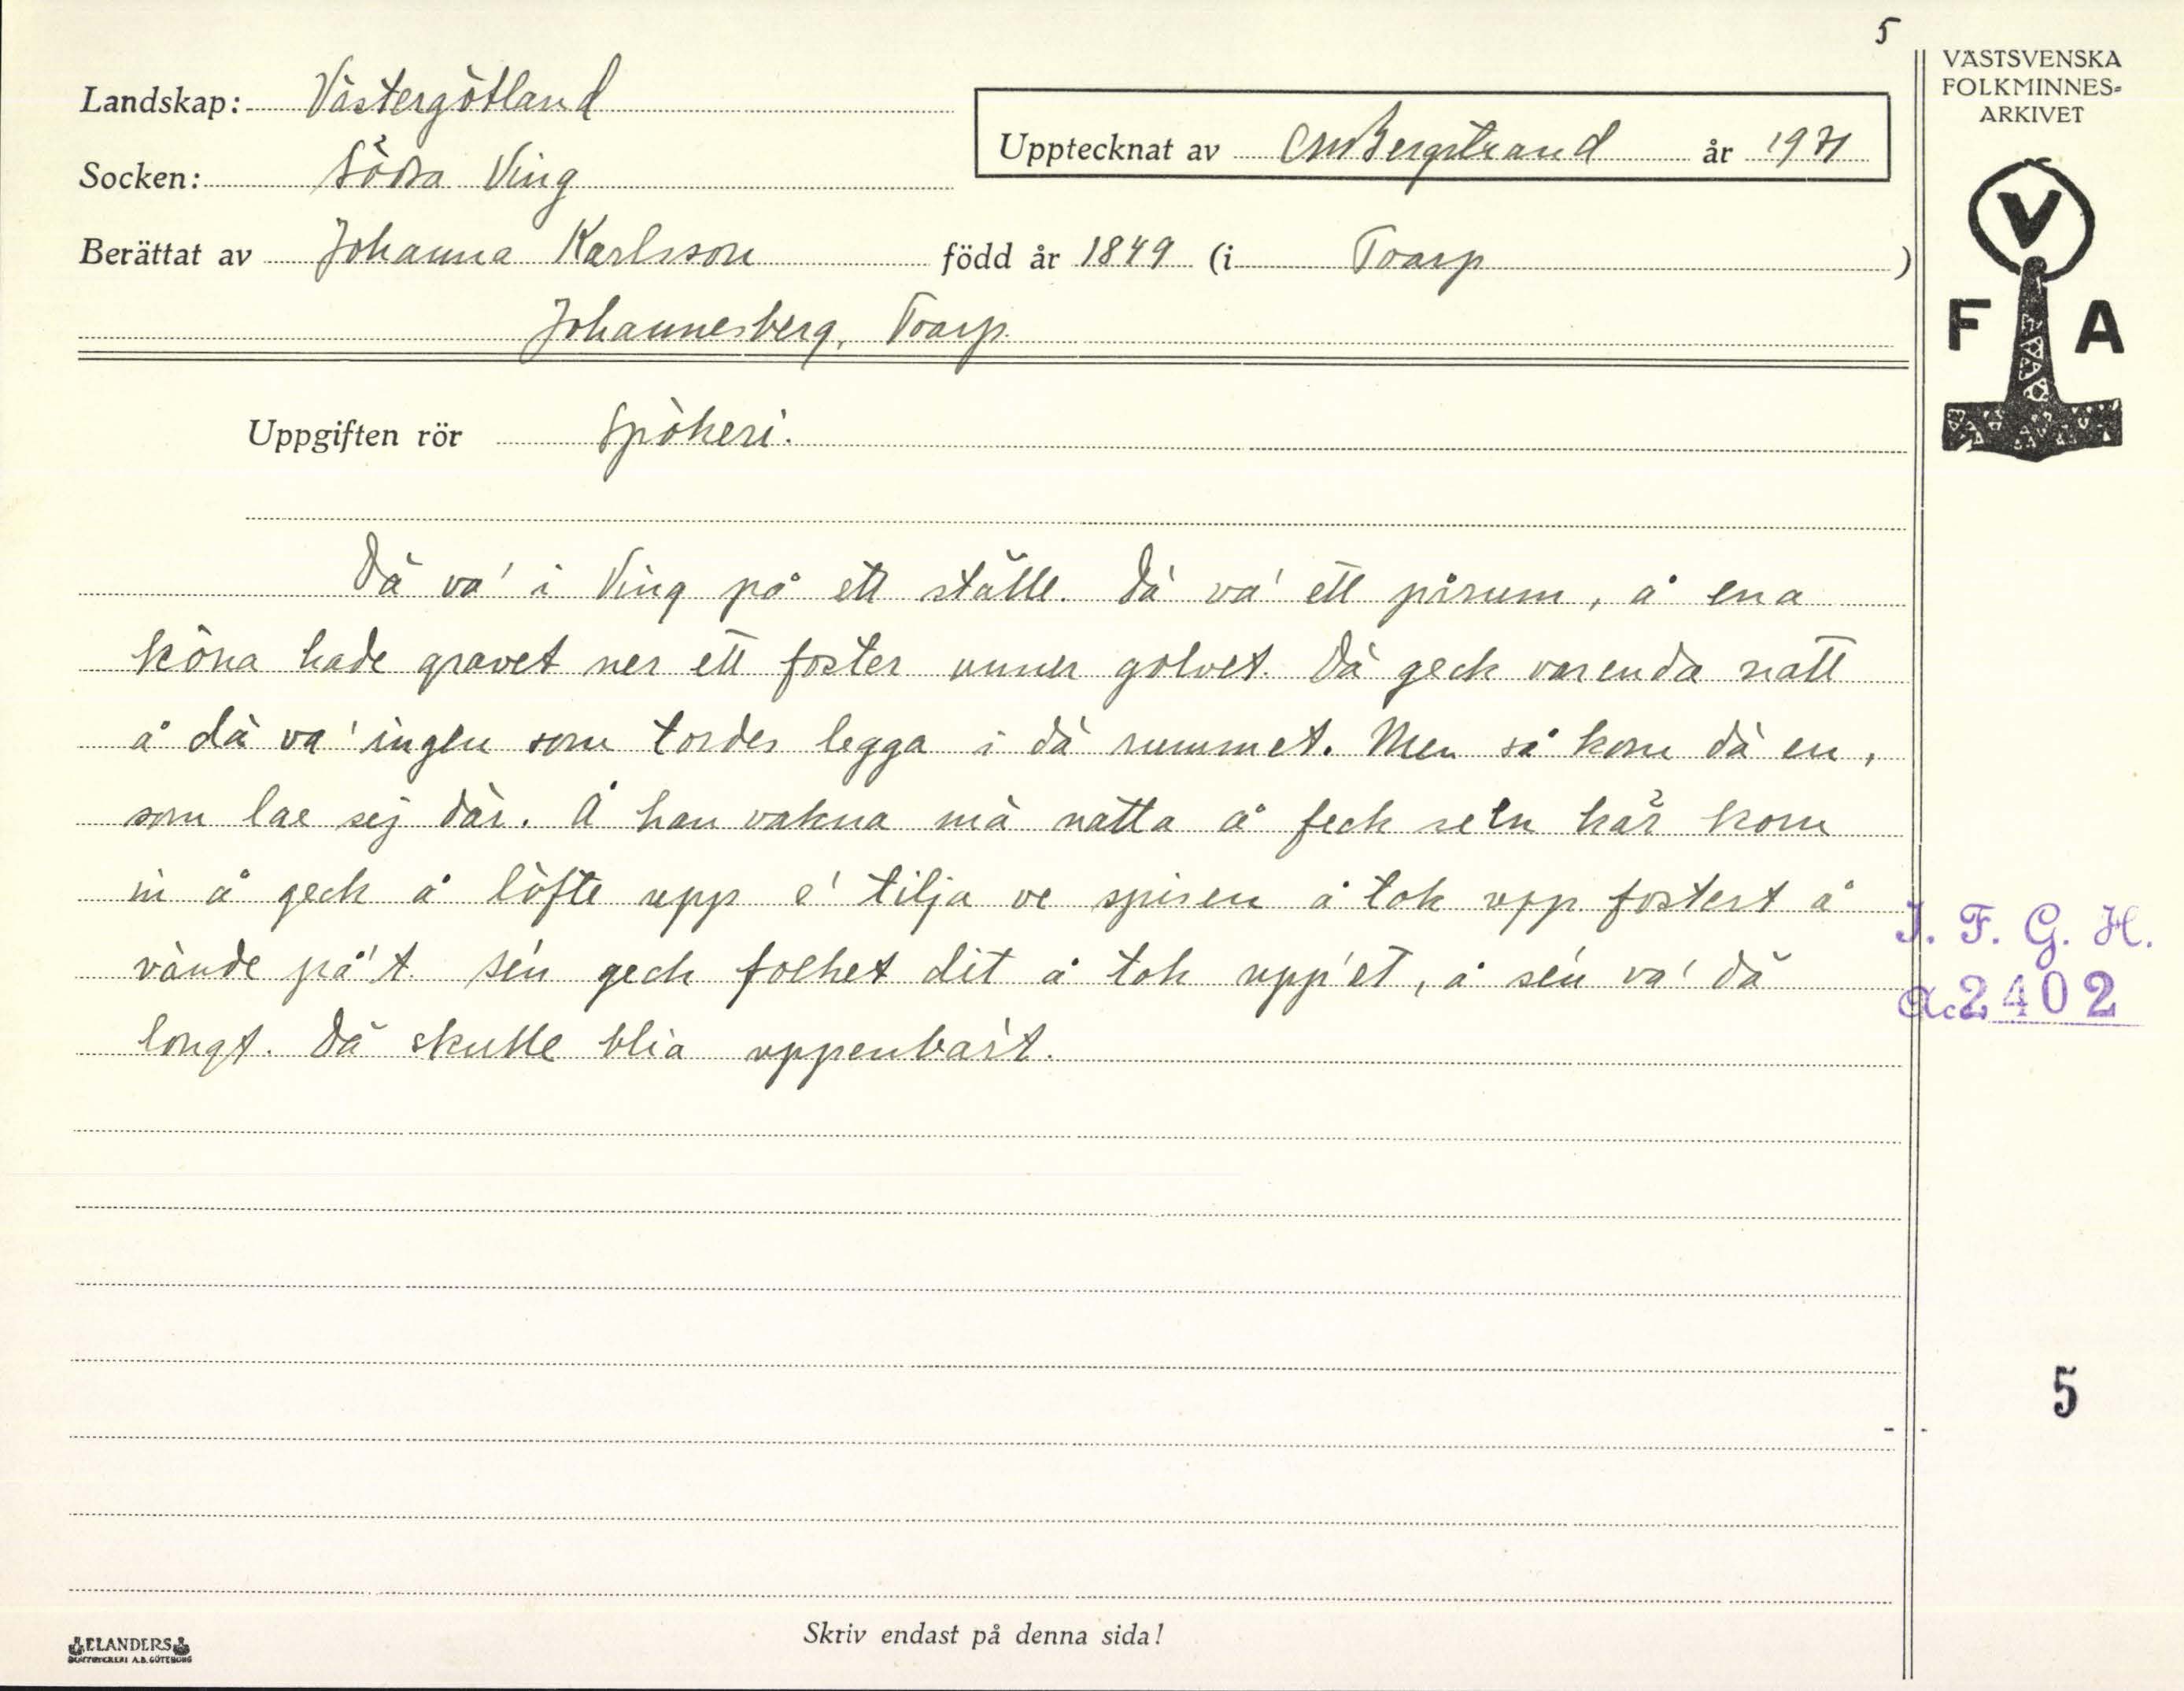 5
VÄSTSVENSKA
FOLKMINNES-
ARKIVET
Landskap: Västergötland
Upptecknat av CMBergstrand år 1931
Socken: Södra Ving
Berättat av Johanna Karlsson född år 1849 (i Toarp)
Johannesberg, Toarp.
V
F A
Uppgiften rör Spökeri.
Dä va' i Ving på ett ställe. Dä va' ett pårum, å ena
köna hade gravet ner ett foster unner golvet. Dä geck varenda natt
å dä va' ingen som tordes legga i dä rummet. Men så kom dä en,
som lae sej där. Å han vakna mä natta å feck se'n kär kom
in å geck å löfte upp e' tilja ve spisen å tok upp fostert å
vände på't. Sén geck folket dit å tok upp'et, å sén va' dä
longt. Dä skulle blia uppenbart.
I. F. G. H.
Ac. 2402
5
ELANDERS
BOKTRYCKERI A.B. GÖTEBORG
Skriv endast på denna sida!